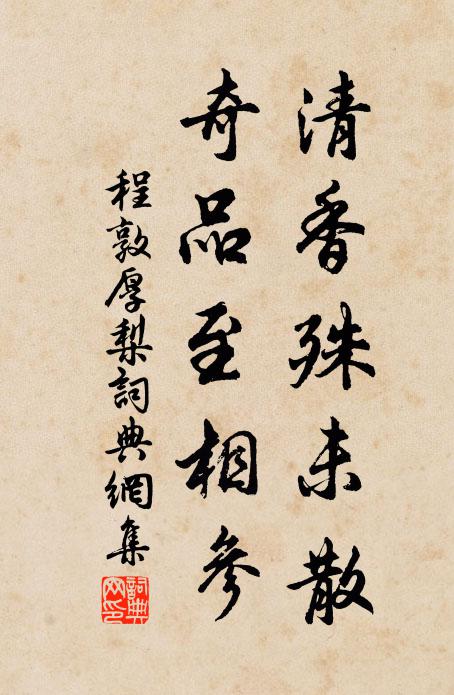 清香殊未散
奇品至相參
程敦厚梨詞典網集
詞典
文印